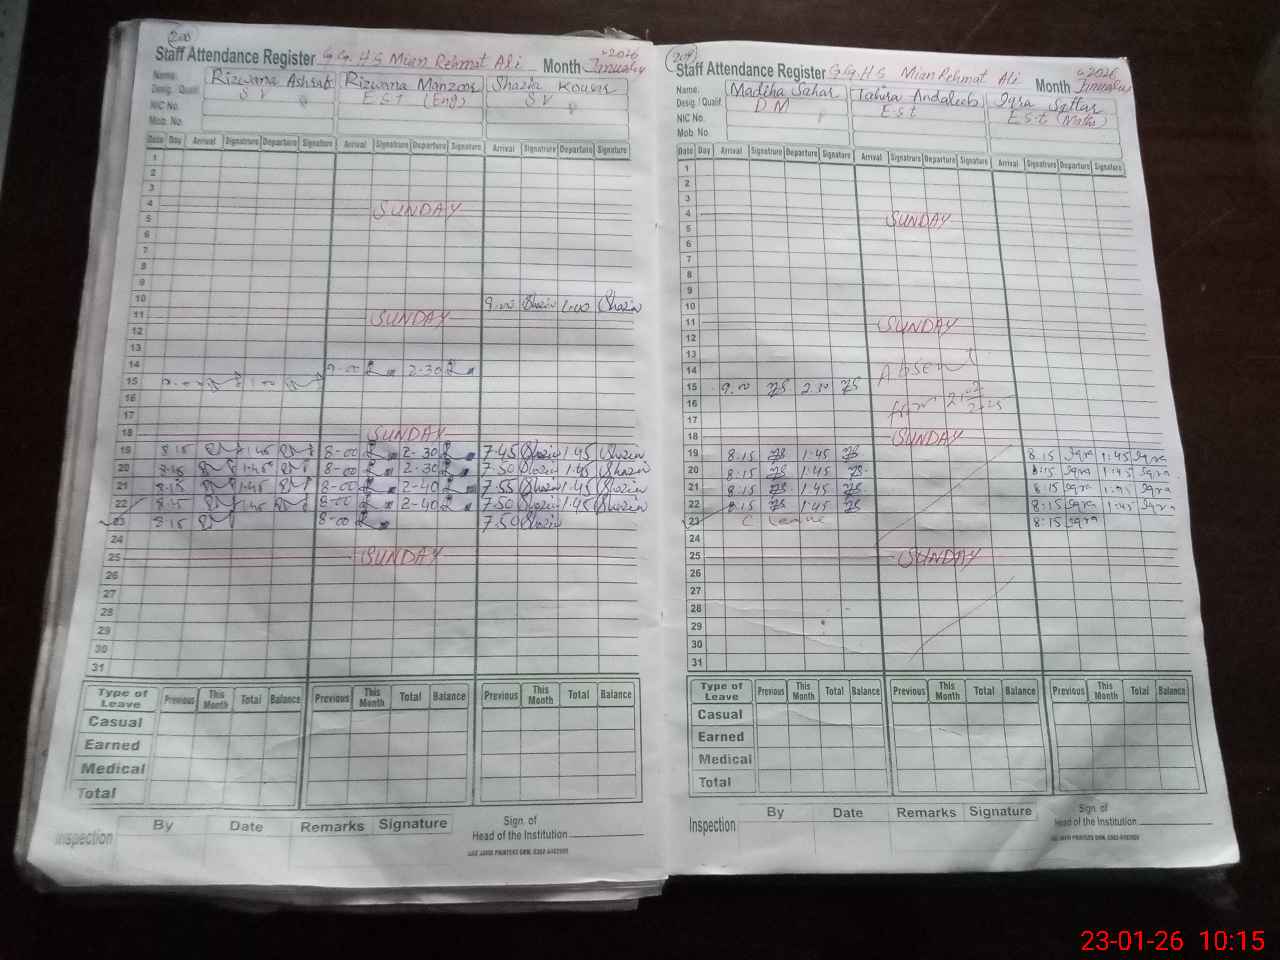 200
Staff Attendance Register G.G.H.S Mian Rehmat Ali Month January 2026
Name. Rizwana Ashraf Rizwana Manzoor Shazia Kousar
Desig. / Qualif. S V E S T (Eng) S V
NIC No.
Mob. No.
Date Day Arrival Signatrure Departure Signature Arrival Signatrure Departure Signature Arrival Signatrure Departure Signature
1
2
3
4 SUNDAY
5
6
7
8
9
10 9-00 Shazia 1-00 Shazia
11 SUNDAY
12
13
14 9-00 2-30
15
16
17
18 SUNDAY
19 8-15 1-45 8-00 2-30 7-45 Shazia 1-45 Shazia
20 8-15 1-45 8-00 2-30 7-50 Shazia 1-45 Shazia
21 8-15 1-45 8-00 2-40 7-55 Shazia 1-45 Shazia
22 8-15 1-45 8-00 2-40 7-50 Shazia 1-45 Shazia
23 8-15 8-00 7-50 Shazia
24
25 SUNDAY
26
27
28
29
30
31
Type of Leave Previous This Month Total Balance Previous This Month Total Balance Previous This Month Total Balance
Casual
Earned
Medical
Total
Inspection By Date Remarks Signature Sign. of Head of the Institution
Staff Attendance Register G.G.H.S Mian Rehmat Ali Month January 2026
Name. Madiha Sahar Tahira Andaleeb Iqra Sattar
Desig. / Qualif. D M E S t E S t (Maths)
NIC No.
Mob. No.
Date Day Arrival Signatrure Departure Signature Arrival Signatrure Departure Signature Arrival Signatrure Departure Signature
1
2
3
4 SUNDAY
5
6
7
8
9
10
11 SUNDAY
12
13
14 Absent
15 9-00 2-30
16 from
17
18 SUNDAY
19 8-15 1-45 8-15 Iqra 1-45 Iqra
20 8-15 1-45 8-15 Iqra 1-45 Iqra
21 8-15 1-45 8-15 Iqra 1-45 Iqra
22 8-15 1-45 8-15 Iqra 1-45 Iqra
23 C Leave 8-15 Iqra
24
25 SUNDAY
26
27
28
29
30
31
Type of Leave Previous This Month Total Balance Previous This Month Total Balance Previous This Month Total Balance
Casual
Earned
Medical
Total
Inspection By Date Remarks Signature Sign. of Head of the Institution
23-01-26 10:15